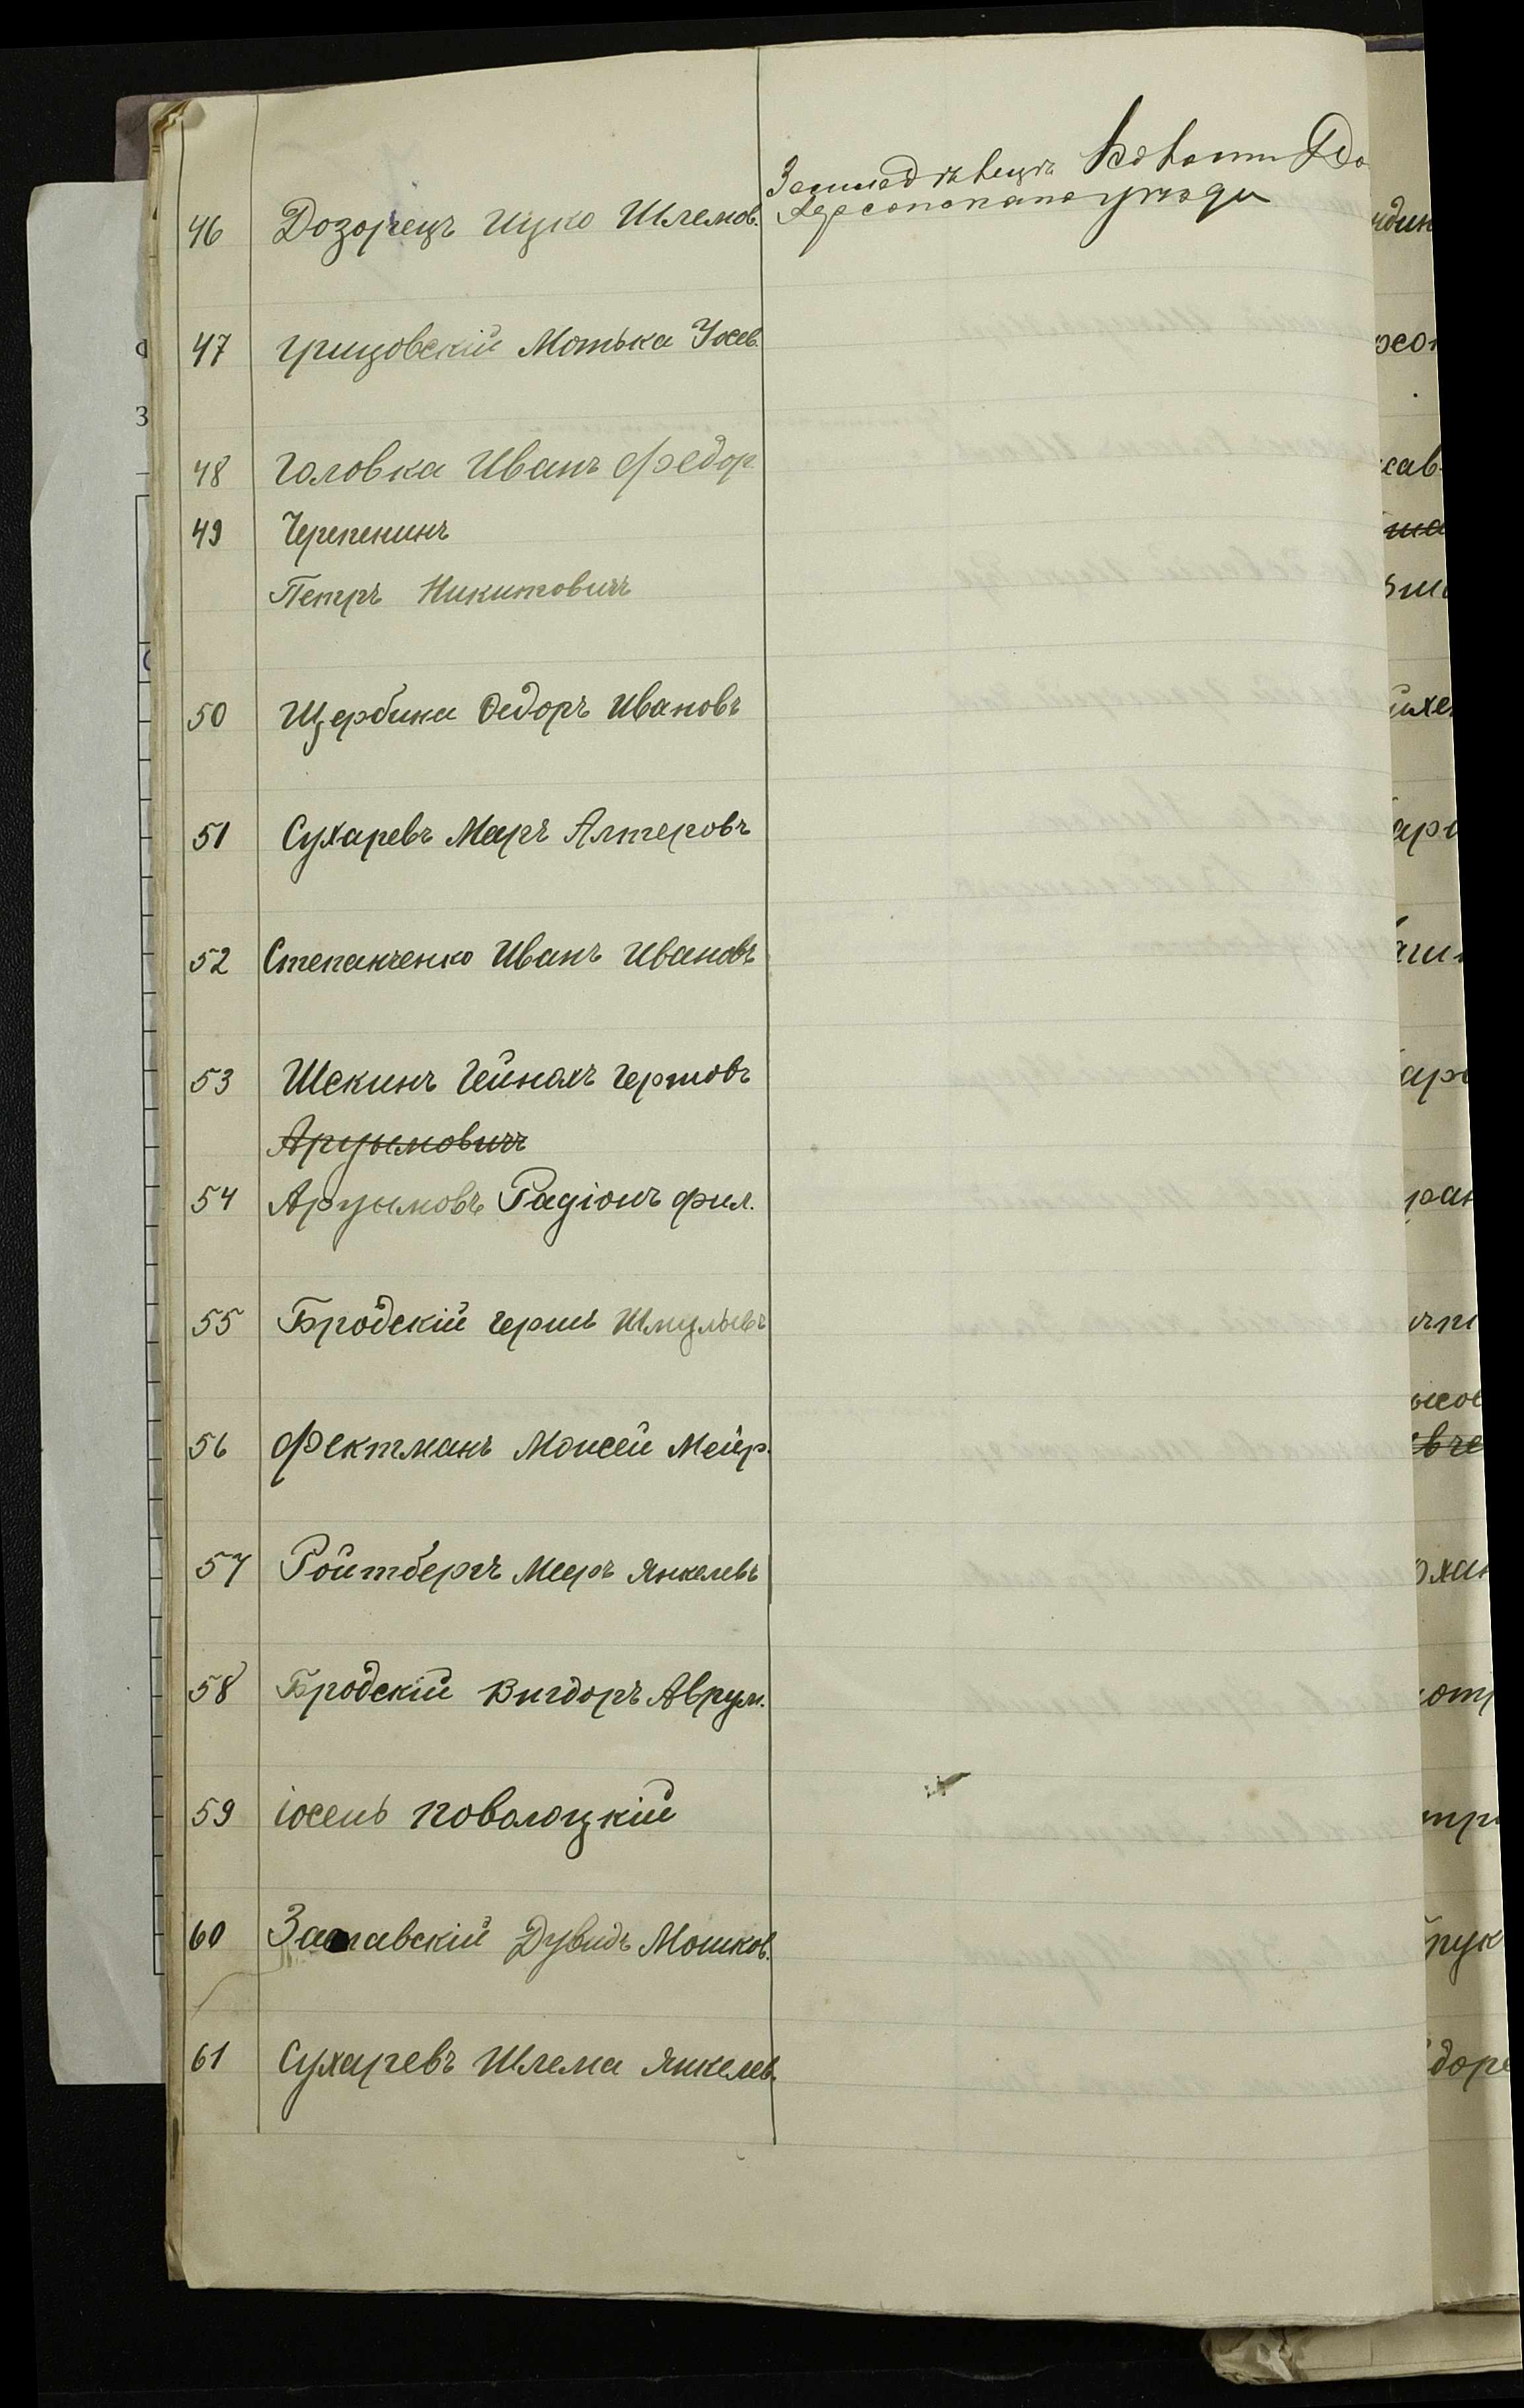 46 Дозорецъ Ицко Шлемов.
Херсонскаго уезда
47 Грицовскій Мотька Усев.
48 Головка Иванъ Федор.
49 Черепенинъ
Петръ Никитовичъ
50 Щербина Федоръ Ивановъ
51 Сухаревъ Меръ Алтеровъ
52 Степанченко Иванъ Ивановъ
53 Шекинъ Гейнахъ Гертовъ
Арцымовичъ
54 Арцымовъ Радіонъ Фил.
55 Бродскій Гершъ Шмульевъ
56 Фектманъ Моисей Мейр.
57 Ройтбергъ Мееръ Янкелевъ
58 Бродскій Вигдоръ Аврум.
59 Іосепь Поволоцкій
60 Заславскій Дувидъ Мошков.
61 Сухаревъ Шлема Янкелев.